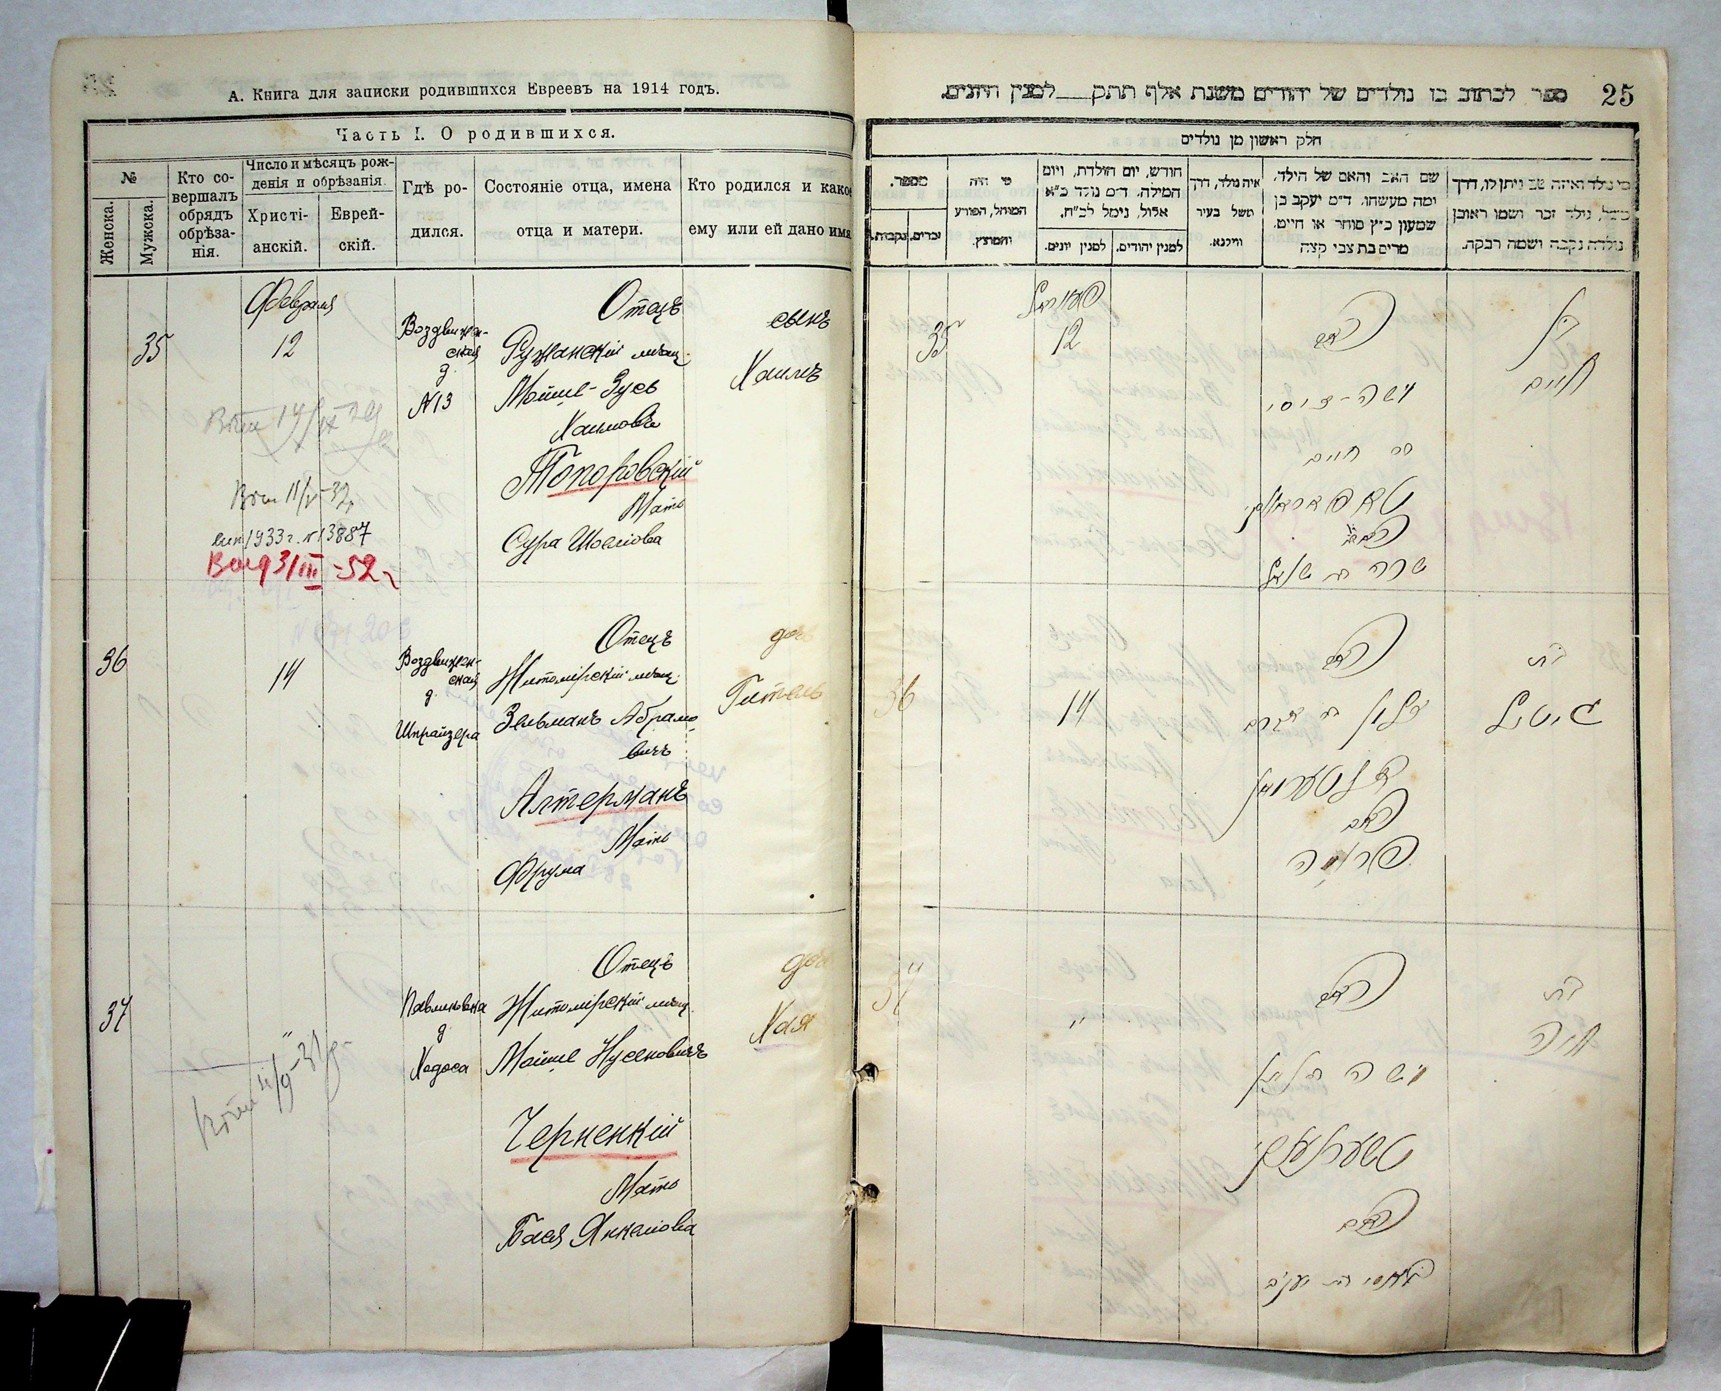 А. Книга для записки родившихся Евреевъ на 1914 годъ.
Часть I. О родившихся.
№
Женска.
Мужска.
Кто со-
вершалъ
обрядъ
обрѣза-
нія.
Число и мѣсяцъ рож-
денія и обрѣзанія.
Христі-
анскій.
Еврей-
скій.
Гдѣ ро-
дился.
Состояніе отца, имена
отца и матери.
Кто родился и како
ему или ей дано имя
35
Февраля
12
Воздвижен-
ская
д.
N13
Отецъ
Ружанскій мѣщ.
Мойше-Зусь
Хаимовъ
Топоровскій
Мать
Сура Шоелова
сынъ
Хаимъ
1933 г. N 13887
36
14
Воздвижен-
ская
д.
Шпрайзера
Отецъ
Житомірскій мѣщ.
Зельманъ Абрамо-
вичъ
Алтерманъ
Мать
Фрума
дочь
Гитель
37
"
Павликовка
д.
Ходоса
Отецъ
Житомірскій мѣщ.
Мойше Нусеновичъ
Черненкій
Мать
Бася Янкелова
дочь
Хая
25
ספר לכתוב בו נולדים של יהודים משנת אלף תתק למנין היונים.
חלק ראשון מן נולדים
מספר.
נקבות.
זכרים.
מי היה
המוהל, הפורע
והמוצץ.
חודש, יום הולדת, ויום
המילה. ד"מ נולד כ"א
אלול, נימל לכ"ח.
למנין יונים.
למנין יהודים.
איה נולד, דרך
משל בעיר
ווילנא.
שם האב והאם של הילד,
ומה מעשהו. ד"מ יעקב בן
שמעון כ"ץ סוחר או חיים.
מרים בת צבי קצה
מי נולד ואיזה שם ניתן לו, דרך
משל, נולד זכר ושמו ראובן
נולדה נקבה ושמה רבקה.
35
12
האב
משה-זוסי
בר חיים
האם
שרה בת שאול
בן
חיים
36
14
האב
זלמן בר אברם
אלטערמאן
האם
פרומה
בת
גיטל
37
"
האב
האם
בת
חיה